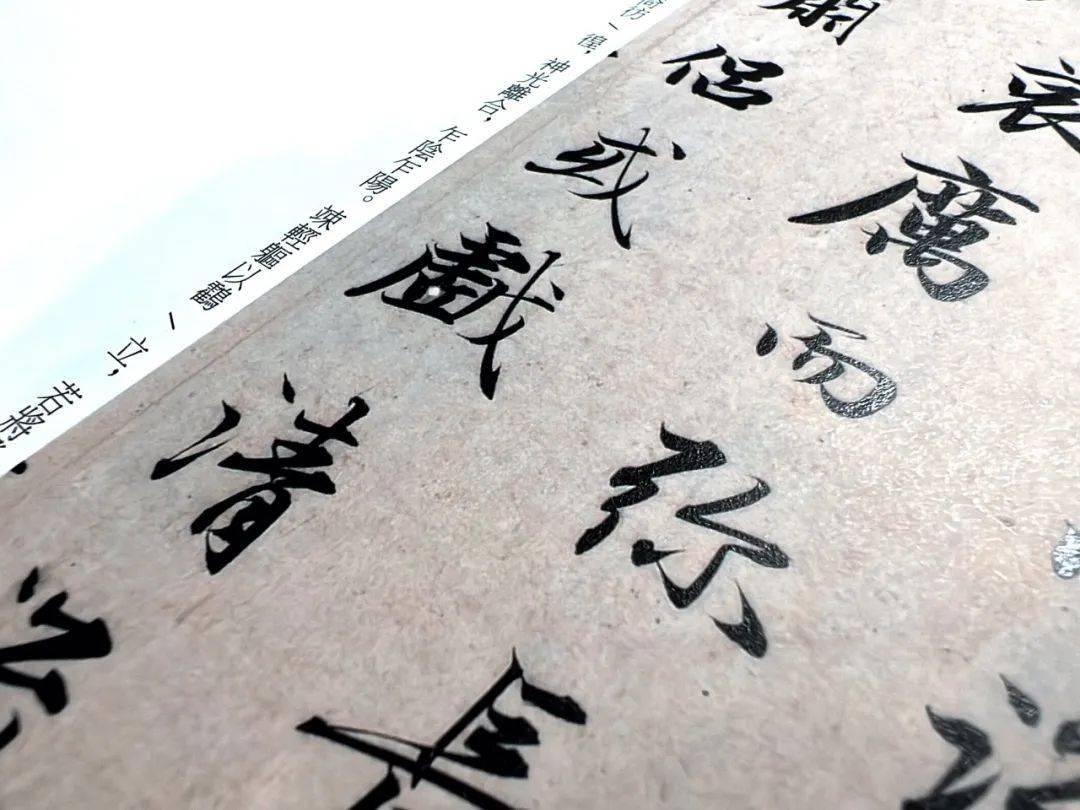 哀厲而彌長
侶或戲清
彷徨，神光離合，乍陰乍陽。竦輕軀以鶴立，若將